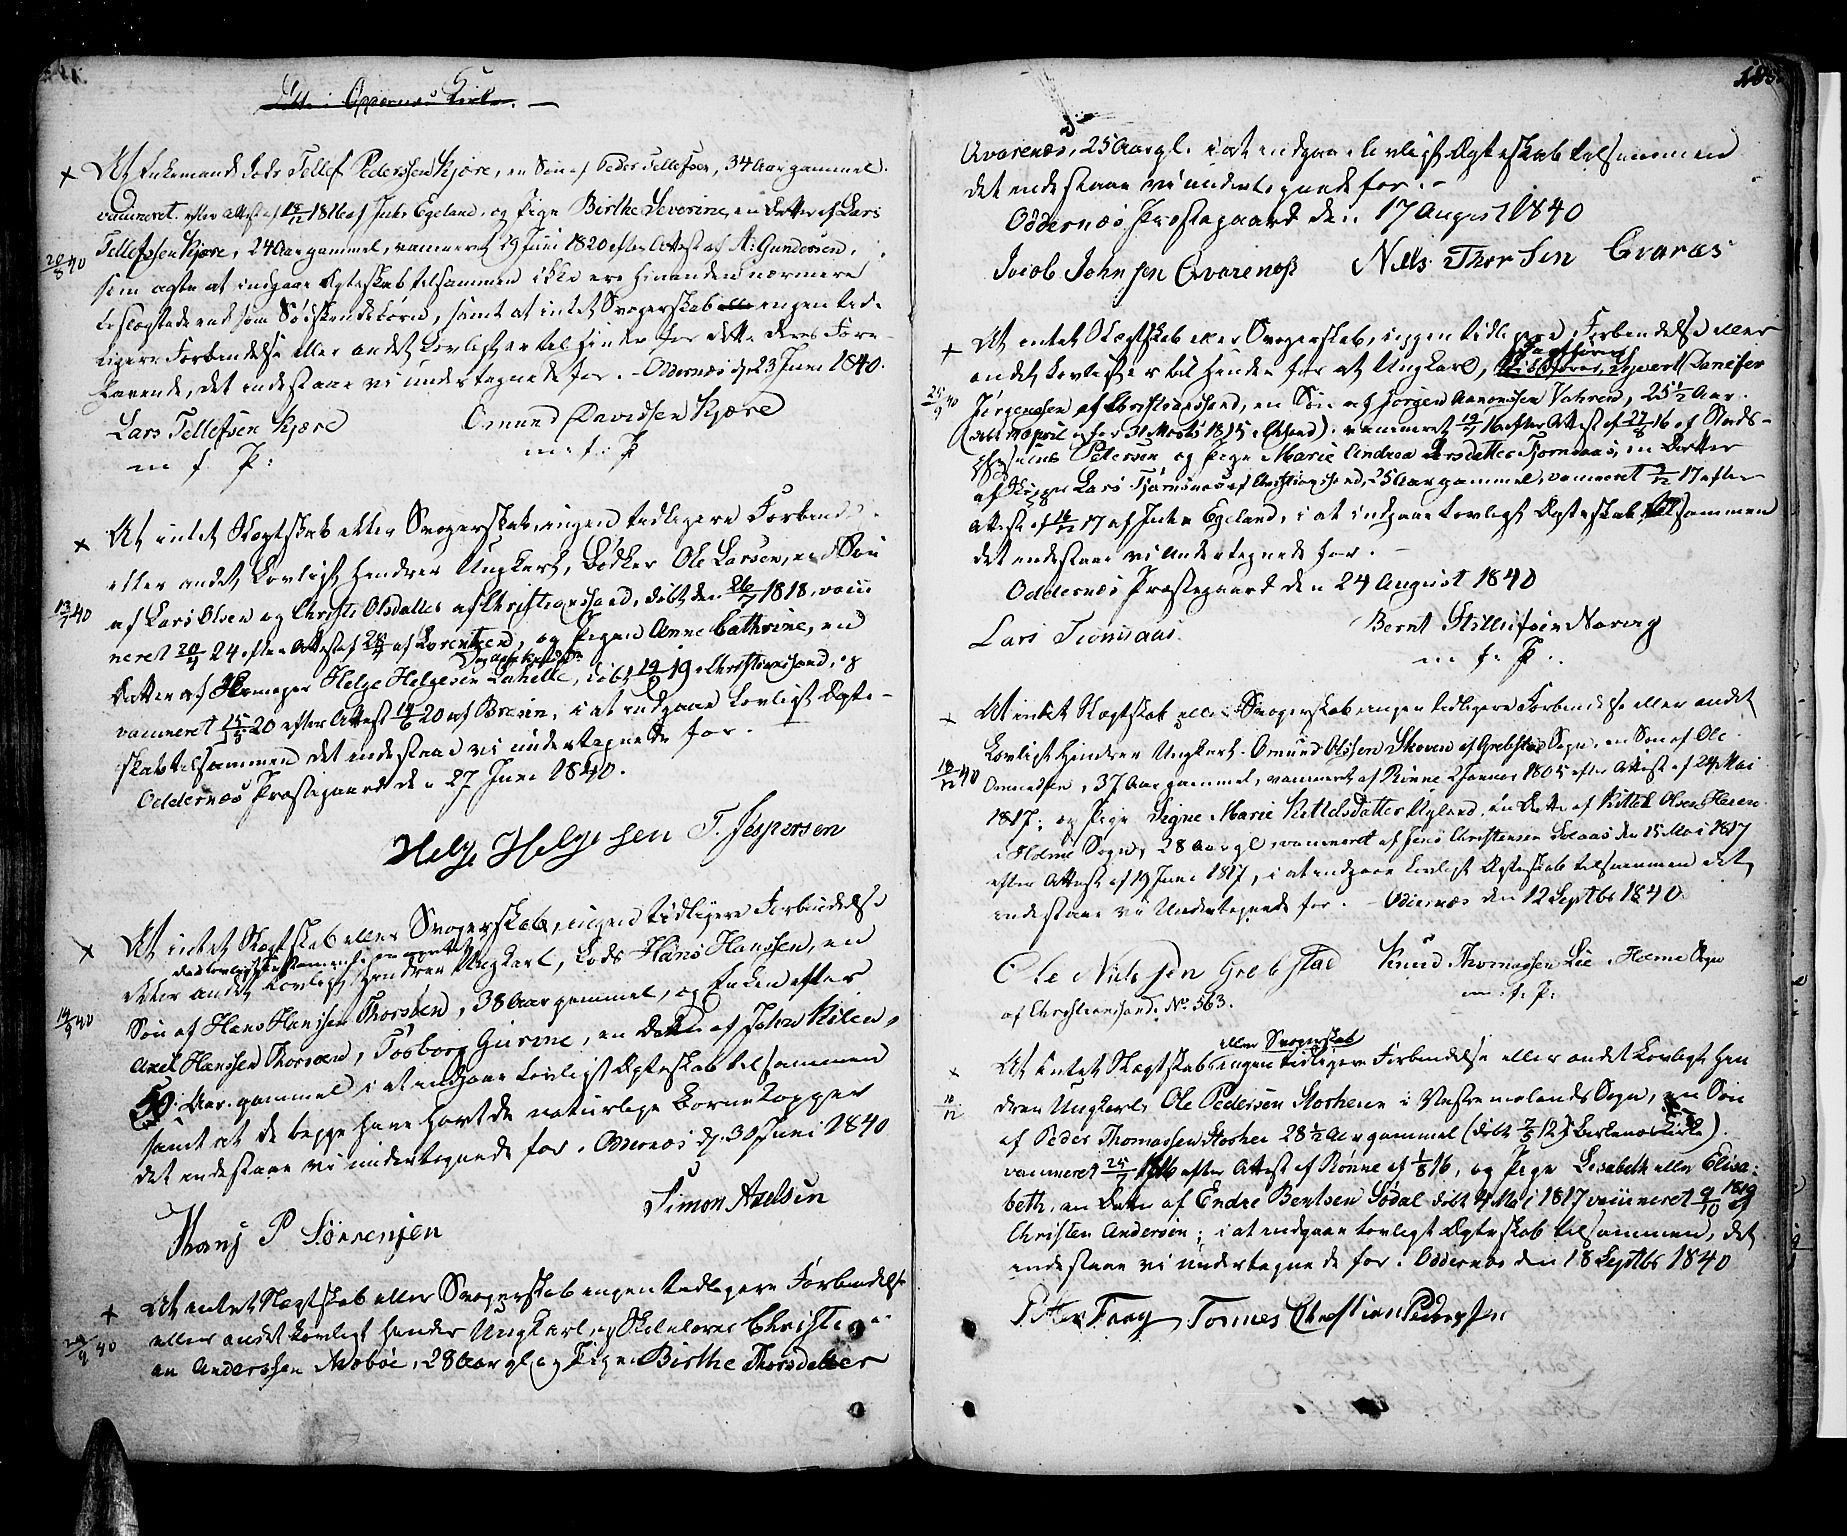 At Enkemand Lods Tellef Pederssen Kjøre, en Søn af Peder Tellefsen, 34 Aar gammel.
vaccineret efter Attest af 1816 af Jntr Egeland, og Pige Birthe Severine, en Datter af Lars
Tellefssen Kjøre, 24 Aar gammel, vaccineret 19 Juni 1820 efter Attest af A. Gundersen,
20/8 40
som agte at indgaae Ægteskab tilsammen ikke ere hinanden nærmere
beslægtede end som Sødskendebørn, samt at intet Svogerskab eller ingen tid-
ligere Forbindelse eller andet Lovligt er til Hinder for dette deres Fore-
havende, det indestaae vi undertegnede for. - Oddernæs d. 23 Juni 1840.
Lars Tellefsen Kjære Omund Davidsen Kjære
m. f. P: m: f: P
At intet Slægtskab eller Svogerskab, ingen tidligere Forbindelse
eller andet Lovligt hindrer Ungkarl, Bødker Ole Larsen, en Søn
13/7 40
af Lars Olsen og Christi Olsdatter af Christianssand, døbt den 26/7 1818, vacci
neret 20/4 24 efter Attest af af Lorentzen, og Pigen Anne Cathrine, en
Datter af Helge Helgesen Lahelle, døbt 19 i Christianssand, og
vaccineret 15/5 20 efter Attest 14/6 20 af Breien, i at indgaae Lovligt Ægte-
skab tilsammen det indestaae vi undertegnede for.
Oddernæs Præstegaard den 27 Juni 1840.
Helje Heljesen T. Jespersen
At intet Slægtskab eller Svogerskab, ingen tidligere Forbindelse
eller andet Lovligt hindrer Ungkarl, Lods Hans Hanssen, en
14/9 40
Søn af Hans Hanssen Thorsøen, 38 Aar gammel, og Enken efter
Axel Hanssen Thorsøen, Tosborg Gurine, en Datter af John Kilen,
50 Aar gammel i at indgaae Lovligt Ægteskab tilsammen
samt at de begge have havt de naturlige Børnekopper
det indestaae vi undertegnede for. Oddernæs d. 30 Juni 1840
Simon Axelsen
Hans P Sørensen
At intet Slægtskab eller Svogerskab ingen tidligere Forbindelse
eller andet Lovligt hinder Ungkarl, og Christi-
an Anderssen Aabøe, 28 Aar gl. og Pigen Birthe Thorsdatter
Qvarenæs, 25 Aar gl. i at indgaae lovligt Ægteskab tilsammen
det indestaae vi undertegnede for. -
Oddernæs Præstegaard den 17 August 1840
Jacob Johnsen Qvarenæs Nills Thorsen
At intet Slægtskab eller Svogerskab, ingen tidligere Forbindelse eller
andet Lovligt er til Hinder for at Ungkarl, Syvert Danifer
25/9 40
Jørgenssen af Christianssand, en Søn af Jørgen Aanonssen Vahren, 25½ Aar.
vaccineret efter Attest af 27/8 16 af Stads-
Petersen og Pige Marie Andrea Larsdatter Tjomsaas, en Datter
af Skipper Lars af Christianssand, 25 Aar gammel, vaccineret 17 efter
Attest af 17 af Jntr Egeland, i at indgaae Lovligt Ægteskab tilsammen
det indestaae vi Undertegnede for. -
Oddernæs Præstegaard den 24 August 1840
Lars Tiomsaas. Bernt Stillufsen Noreig
m. f. P.
At intet Slægtskab eller Svogerskab ingen tidligere Forbindelse eller andet
Lovligt hindrer Ungkarl. Omund Olssen Skoven af Grebstad Sogn, en Søn af Ole
Omundsen, 37 Aar gammel, vaccineret af Rinne 2 Januar 1805 efter Attest af 24 Mai
1817, og Pige Signe Marie Kittelsdatter Ugland, en Datter af Kittel Olsen
i Holme Sogn, 28 Aar gl., vaccineret af Jens Christensen Solaas den 15 Mai 1817
efter Attest af 19 Juni 1817, i at indgaae Lovligt Ægteskab tilsammen det
indestaae vi Undertegnede for. - Oddernæs den 12 Septbr 1840.
Ole Nielssen Grebstad Knud Thomassen Lie i Holme Sogn
af Christianssand. No. 563. m. f. P.
eller Svogerskab
At intet Slægtskab ingen tidligere Forbindelse eller andet Lovligt hin
drer Ungkarl Ole Pedersen Storheien i Vestre Molands Sogn, en Søn
af Peder Thomassen Storhei 28½ Aar gammel (døbt 12 i Birkenæs Kirke).
vaccineret 25/7 1816 efter Attest af Rønne af 1/8 16, og Pige Lisabeth eller Elisa-
beth, en Datter af Endre Berntsen Sødal døbt 4 Mai 1817 vaccineret 9/10 1819 af
Christen Andersen; i at indgaae Lovligt Ægteskab tilsammen, det
indestaae vi undertegnede for. Oddernæs den 18 Septbr 1840
Petter Frøy Tønnes Christian Pederssen